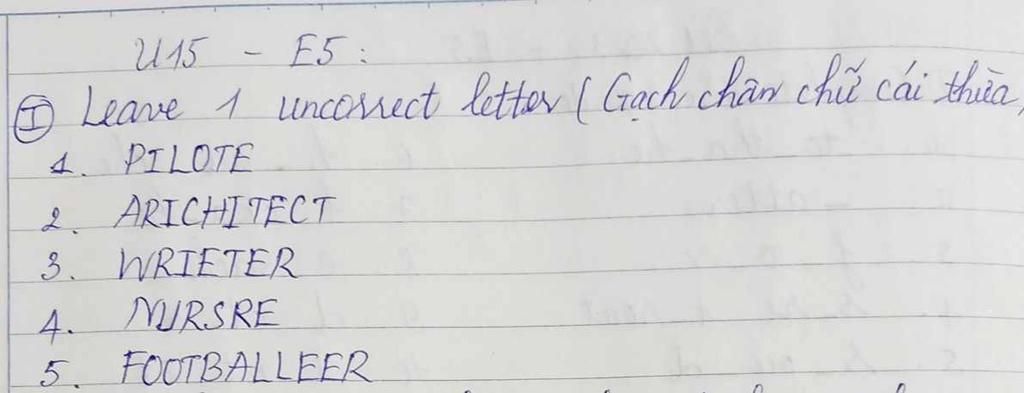 U15 - E5 :
I Leave 1 uncorrect letter ( Gạch chân chữ cái thừa)
1. PILOTE
2. ARICHITECT
3. WRIETER
4. NURSRE
5. FOOTBALLEER